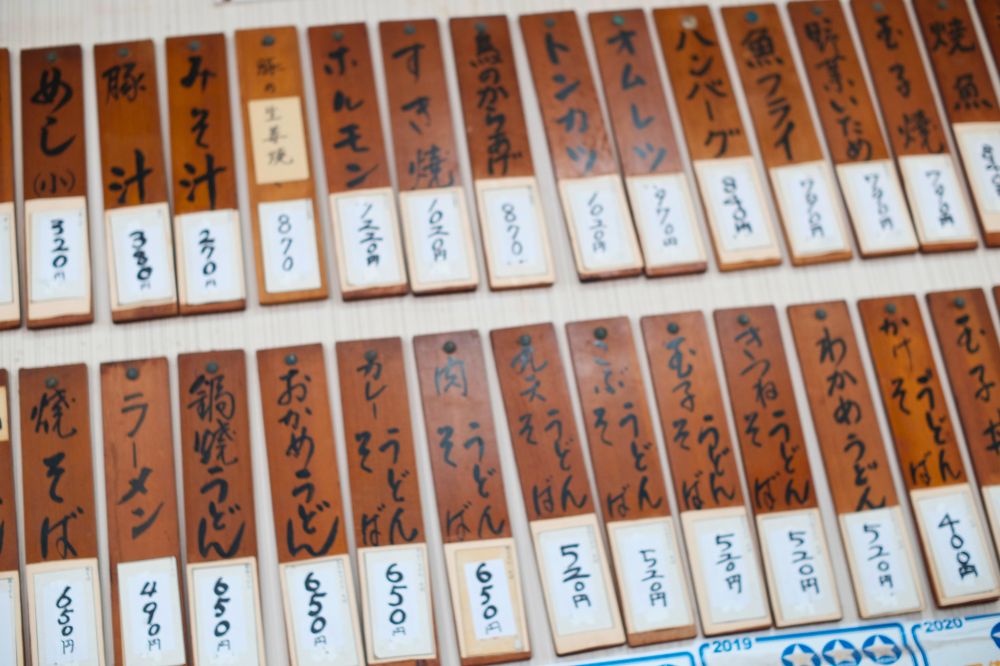 めし(小) 320円
豚汁 380円
みそ汁 270円
豚の生姜焼 870
ホルモン 1220円
すき焼 1020円
鳥のからあげ 870
トンカツ 1020円
オムレツ 970円
ハンバーグ 840円
魚フライ 770円
野菜いため 770円
玉子焼 770円
焼魚
焼そば 650円
ラーメン 490円
鍋焼うどん 650円
おかめうどん 650円
カレーうどんそば 650円
肉うどんそば 650円
天うどんそば 520円
こぶうどんそば 520円
玉子うどんそば 520円
きつねうどんそば 520円
わかめうどん 520円
かけうどんそば 400円
玉子丼
2019
2020